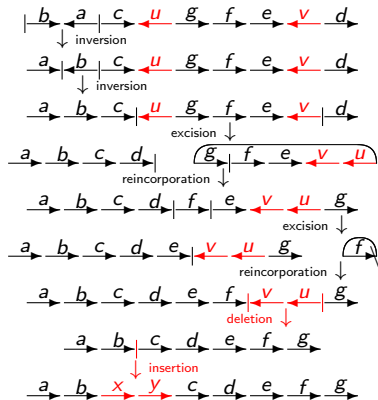 b a c u g f e v d
inversion
a b c u g f e v d
inversion
a b c u g f e v d
excision
a b c d g f e v u
reincorporation
a b c d f e v u g
excision
a b c d e v u g f
reincorporation
a b c d e f v u g
deletion
a b c d e f g
insertion
a b x y c d e f g